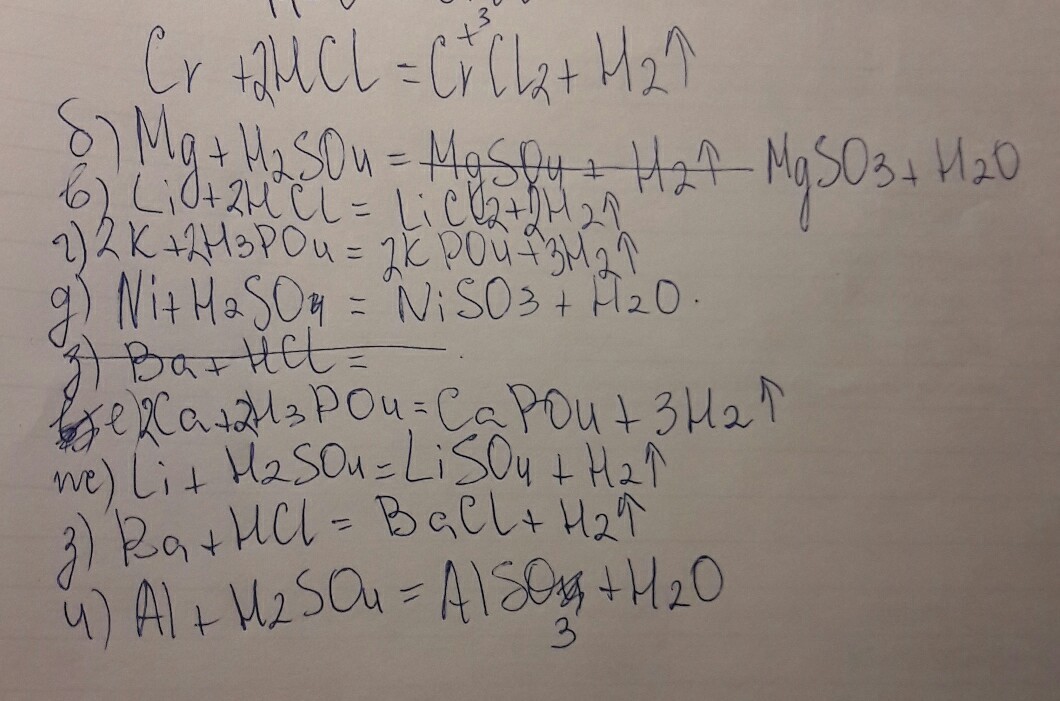 Cr + 2HCl = Cr⁺³Cl2 + H2↑
б) Mg + H2SO4 = MgSO4 + H2↑ MgSO3 + H2O
в) Li + 2HCl = LiCl2 + 2H2↑
г) 2K + 2H3PO4 = 2KPO4 + 3H2↑
д) Ni + H2SO4 = NiSO3 + H2O.
з) Ba + HCl =
е) 2Ca + 2H3PO4 = CaPO4 + 3H2↑
ж) Li + H2SO4 = LiSO4 + H2↑
з) Ba + HCl = BaCl + H2↑
и) Al + H2SO4 = AlSO3 + H2O